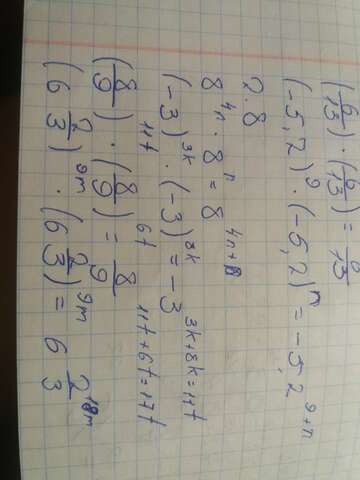 (6/13) · (6/13) = 6/13
(-5,2)^9 · (-5,2)^n = -5,2^{9+n}
2.8
8^{4n} · 8^n = 8^{4n+}
(-3)^{3k} · (-3)^{8k} = -3^{3k+8k=11t}
(8/9)^{11t} · (8/9)^{6t} = 8/9^{11t+6t=17t}
(6 2/3)^{9m} · (6 2/3)^{9m} = 6 2/3^{18m}